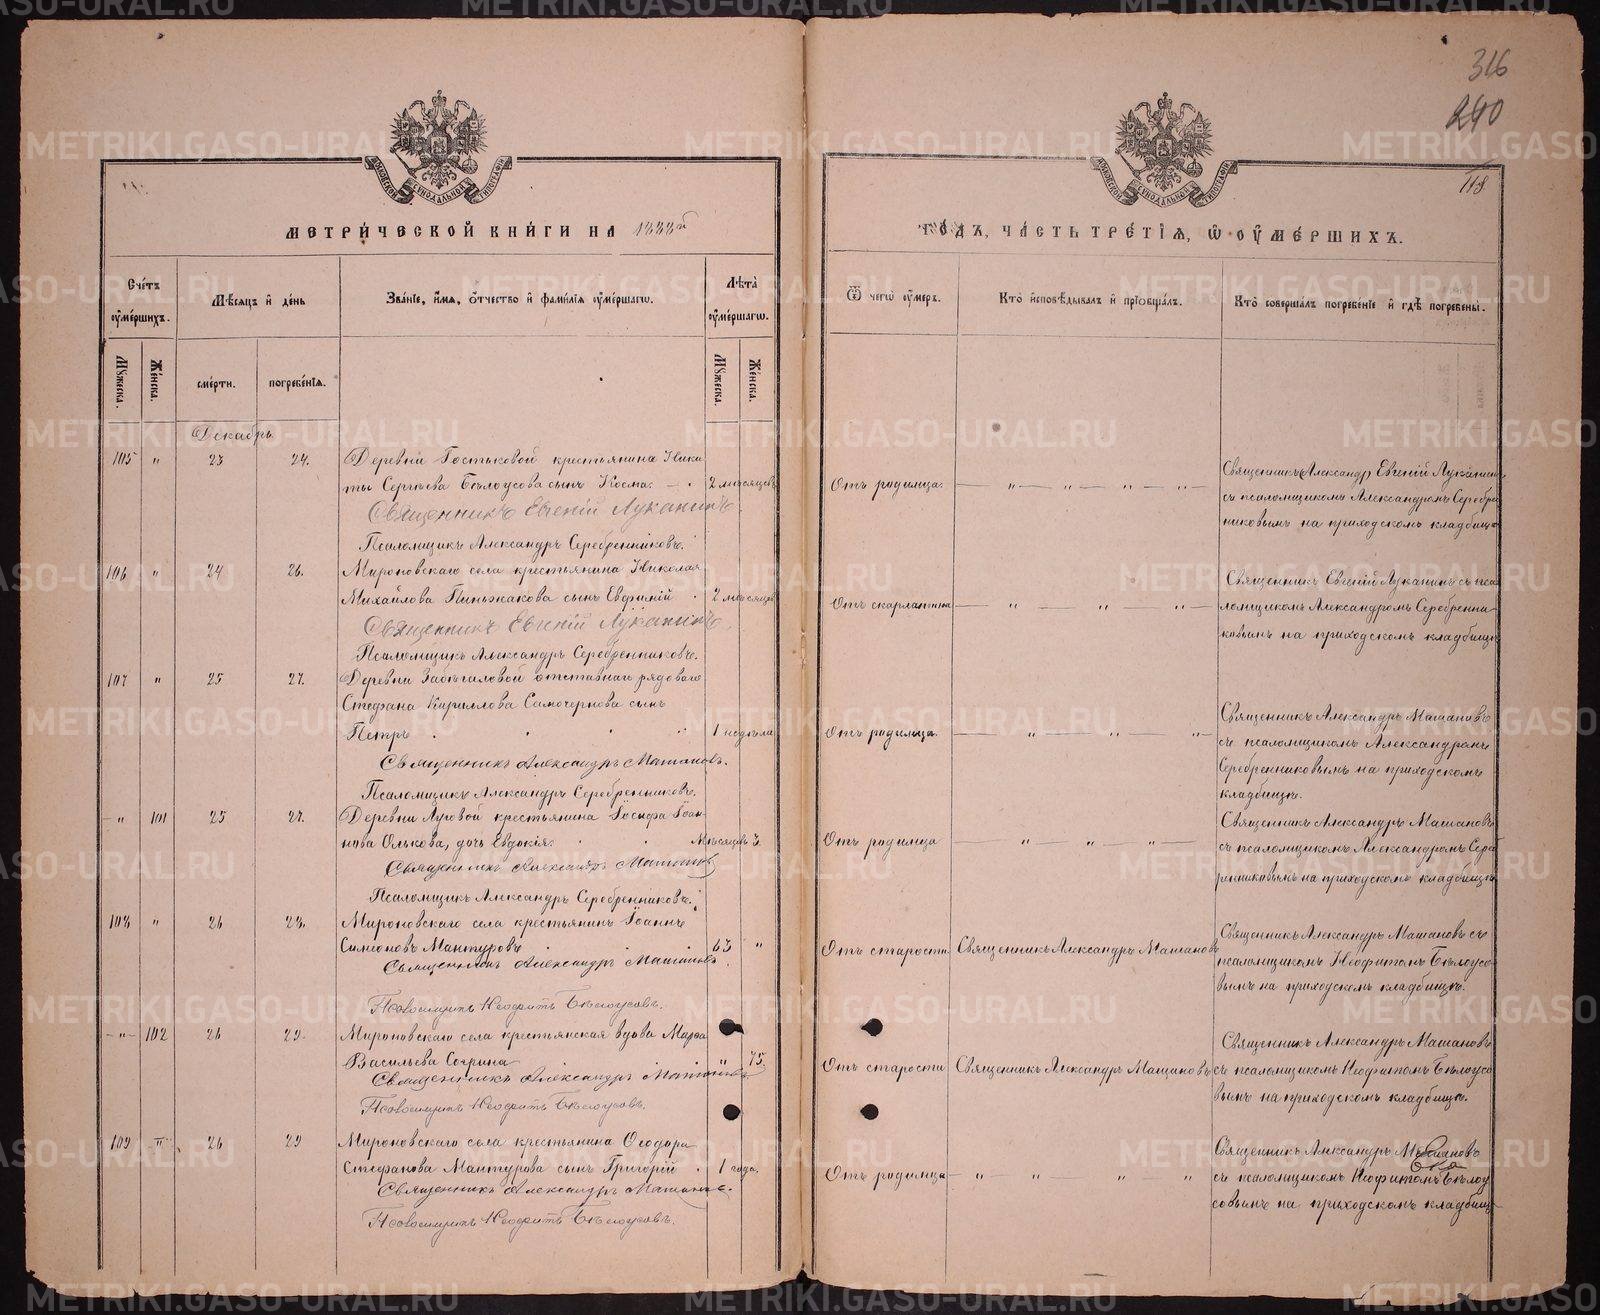 316
240
118
МОСКОВСКОЙ СѴНОДАЛЬНОЙ ТИПОГРАФІИ
МОСКОВСКОЙ СѴНОДАЛЬНОЙ ТИПОГРАФІИ
МЕТРИ́ЧЕСКОЙ КНИ́ГИ НА 1888й
ГО́ДЪ, ЧА́СТЬ ТРЕ́ТІѦ, Ѿ ОУМЕ́РШИХЪ.
Сче́тъ оумершихъ.
Мѣ́сѧцъ и де́нь
Зва́нїе, и́мѧ, о́тчество и фами́лїѧ оуме́ршагѡ.
Лѣта̀ оуме́ршагѡ.
Ѿ чегѡ̀ оу́меръ.
Кто̀ и҆сповѣ́дывалъ и прїобща́лъ.
Кто̀ соверша́лъ погребе́нїе и гдѣ̀ погребены̀.
Мꙋ́жеска.
Же́нска.
сме́рти.
погребе́нїѧ.
Мꙋ́жеска.
Же́нска.
Декабрь.
105 " 23 24. Деревни Гостьковой крестьянина Ники
ты Сергѣева Бѣлоусова сынъ Косма. 2 мѣсяцевъ
Священникъ Евгеній Луканинъ.
Псаломщикъ Александръ Серебренниковъ.
Отъ родимца. — " — " — " — " —
Священникъ Александр Евгеній Луканинъ
съ псаломщикомъ Александромъ Серебре
никовымъ на приходскомъ кладбищѣ
106 " 24 26. Мироновскаго села крестьянина Николая
Михайлова Пинжакова сынъ Евфимій 2 мѣсяцев
Священникъ Евгеній Луканинъ.
Псаломщикъ Александръ Серебренниковъ.
Отъ скарлатина — " — " — "
Священникъ Евгеній Луканинъ съ пса
ломщикомъ Александромъ Серебренни-
ковымъ на приходскомъ кладбищѣ
107 " 25 27. Деревни Забѣгаловой отставнаго рядоваго
Стефана Кириллова Самочернова сынъ
Петръ 1 недѣли
Священникъ Александръ Машановъ.
Псаломщикъ Александръ Серебренниковъ.
Отъ родимца. — " — " — "
Священникъ Александръ Машановъ
съ псаломщикомъ Александромъ
Серебренниковымъ на приходскомъ
кладбищѣ.
" 101 25 27. Деревни Луговой крестьянина Іосифа Іоан-
нова Олькова, дочь Евдокія. Мѣсяцевъ 3.
Священникъ Александръ Машановъ
Псаломщикъ Александръ Серебренниковъ.
Отъ родимца — " — " — "
Священникъ Александръ Машановъ
съ псаломщикомъ Александромъ Сереб
ренниковымъ на приходскомъ кладбищѣ
108 " 26 28. Мироновскаго села крестьянинъ Іоаннъ
Симеоновъ Мантуровъ 63 "
Священникъ Александръ Машановъ.
Псаломщикъ Неофитъ Бѣлоусовъ.
Отъ старости. Священникъ Александръ Машановъ
Священникъ Александръ Машановъ съ
псаломщикомъ Неофитомъ Бѣлоусо-
вымъ на приходскомъ кладбищѣ.
" 102 26 29. Мироновскаго села крестьянская вдова Марфа
Васильева Согрина " 75.
Священникъ Александръ Машановъ
Псаломщикъ Неофитъ Бѣлоусовъ.
Отъ старости Священникъ Александръ Машановъ
Священникъ Александръ Машановъ
съ псаломщикомъ Неофитомъ Бѣлоусо
вымъ на приходскомъ кладбищѣ.
109 " 26 29 Мироновскаго села крестьянина Ѳеодора
Стефанова Мантурова сынъ Григорій 1 года.
Священникъ Александръ Машановъ.
Псаломщикъ Неофитъ Бѣлоусовъ.
Отъ родимца — " — " — " — "
Священникъ Александръ Машановъ
съ псаломщикомъ Неофитомъ Бѣлоу
совымъ на приходскомъ кладбищ
METRIKI.GASO-URAL.RU